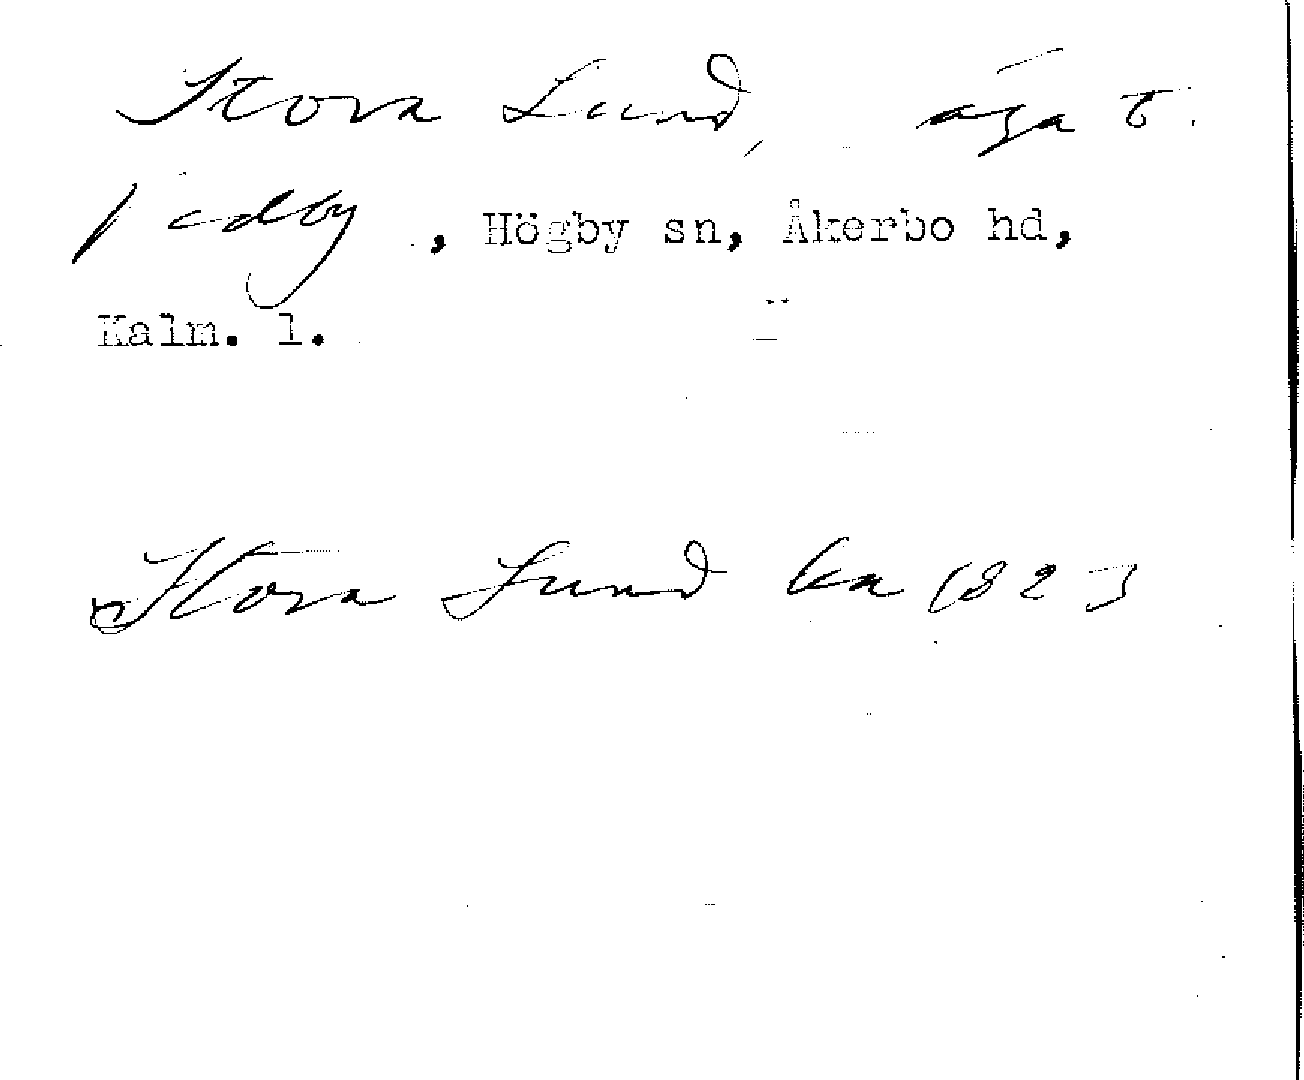 Stora Lund, äga t.
, Högby sn, Åkerbo hd,
Kalm. l.
Stora Lund ka 1823